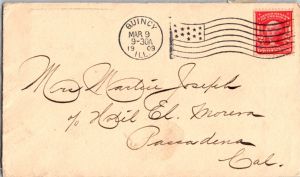 QUINCY
MAR 9
9-30A
1909
ILL.
Mrs. Martin Joseph
c/o Hotel El. Morera
Pasadena
Cal.